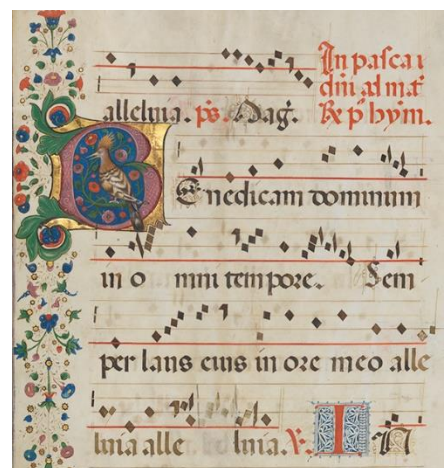 In pasca i
alleluia. ps. Mag.
Benedicam dominum
in o mni tempore. Sem
per laus eius in ore meo alle
luia alle luia. V. IN